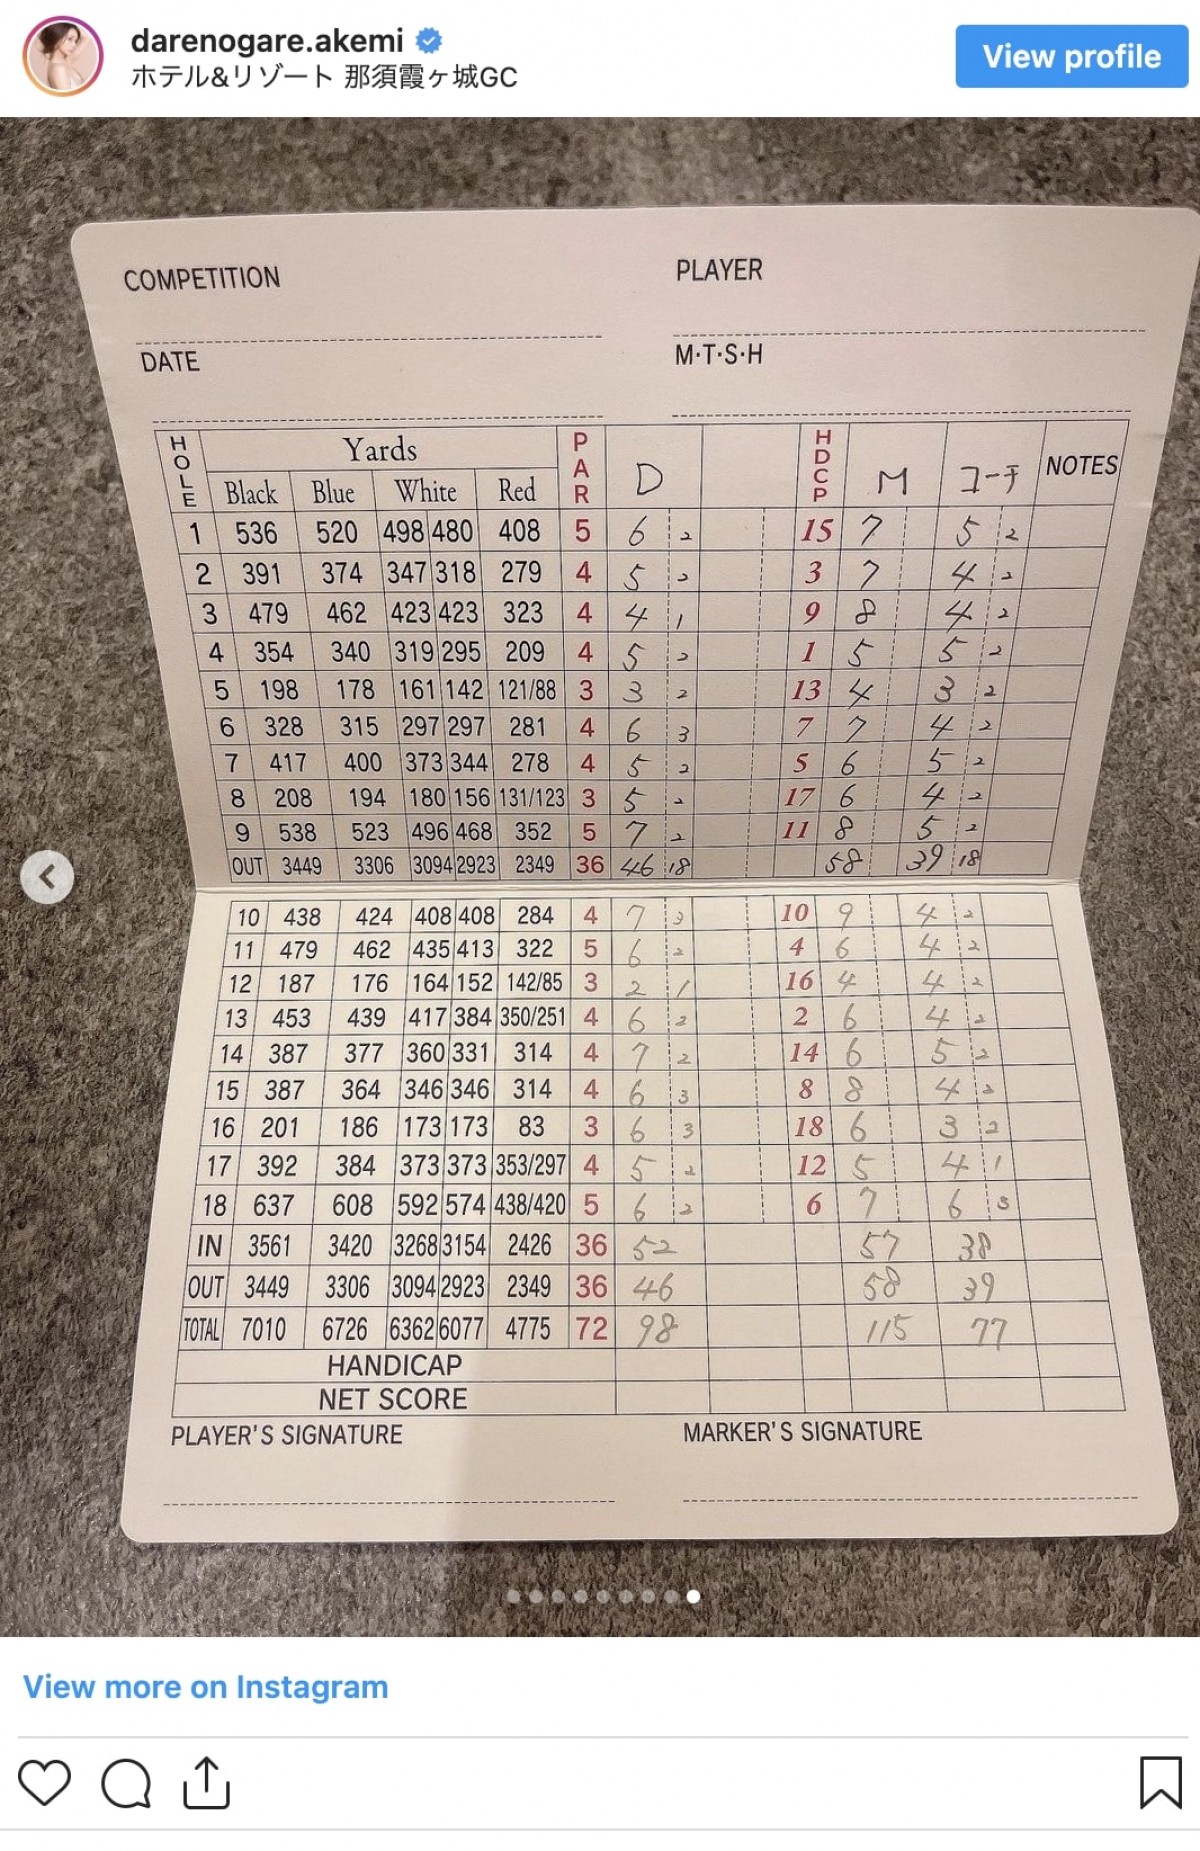 darenogare.akemi
ホテル&リゾート 那須霞ヶ城GC
View profile
COMPETITION
PLAYER
DATE
M·T·S·H
HOLE Yards PAR D HDCP M コーチ NOTES
Black Blue White Red
1 536 520 498 480 408 5 6 2 15 7 5 2
2 391 374 347 318 279 4 5 2 3 7 4 2
3 479 462 423 423 323 4 4 1 9 8 4 2
4 354 340 319 295 209 4 5 2 1 5 5 2
5 198 178 161 142 121/88 3 3 2 13 4 3 2
6 328 315 297 297 281 4 6 3 7 7 4 2
7 417 400 373 344 278 4 5 2 5 6 5 2
8 208 194 180 156 131/123 3 5 2 17 6 4 2
9 538 523 496 468 352 5 7 2 11 8 5 2
OUT 3449 3306 3094 2923 2349 36 46 18 58 39 18
10 438 424 408 408 284 4 7 3 10 9 4 2
11 479 462 435 413 322 5 6 2 4 6 4 2
12 187 176 164 152 142/85 3 2 1 16 4 4 2
13 453 439 417 384 350/251 4 6 2 2 6 4 2
14 387 377 360 331 314 4 7 2 14 6 5 2
15 387 364 346 346 314 4 6 3 8 8 4 2
16 201 186 173 173 83 3 6 3 18 6 3 2
17 392 384 373 373 353/297 4 5 2 12 5 4 1
18 637 608 592 574 438/420 5 6 2 6 7 6 3
IN 3561 3420 3268 3154 2426 36 52 57 38
OUT 3449 3306 3094 2923 2349 36 46 58 39
TOTAL 7010 6726 6362 6077 4775 72 98 115 77
HANDICAP
NET SCORE
PLAYER'S SIGNATURE
MARKER'S SIGNATURE
View more on Instagram